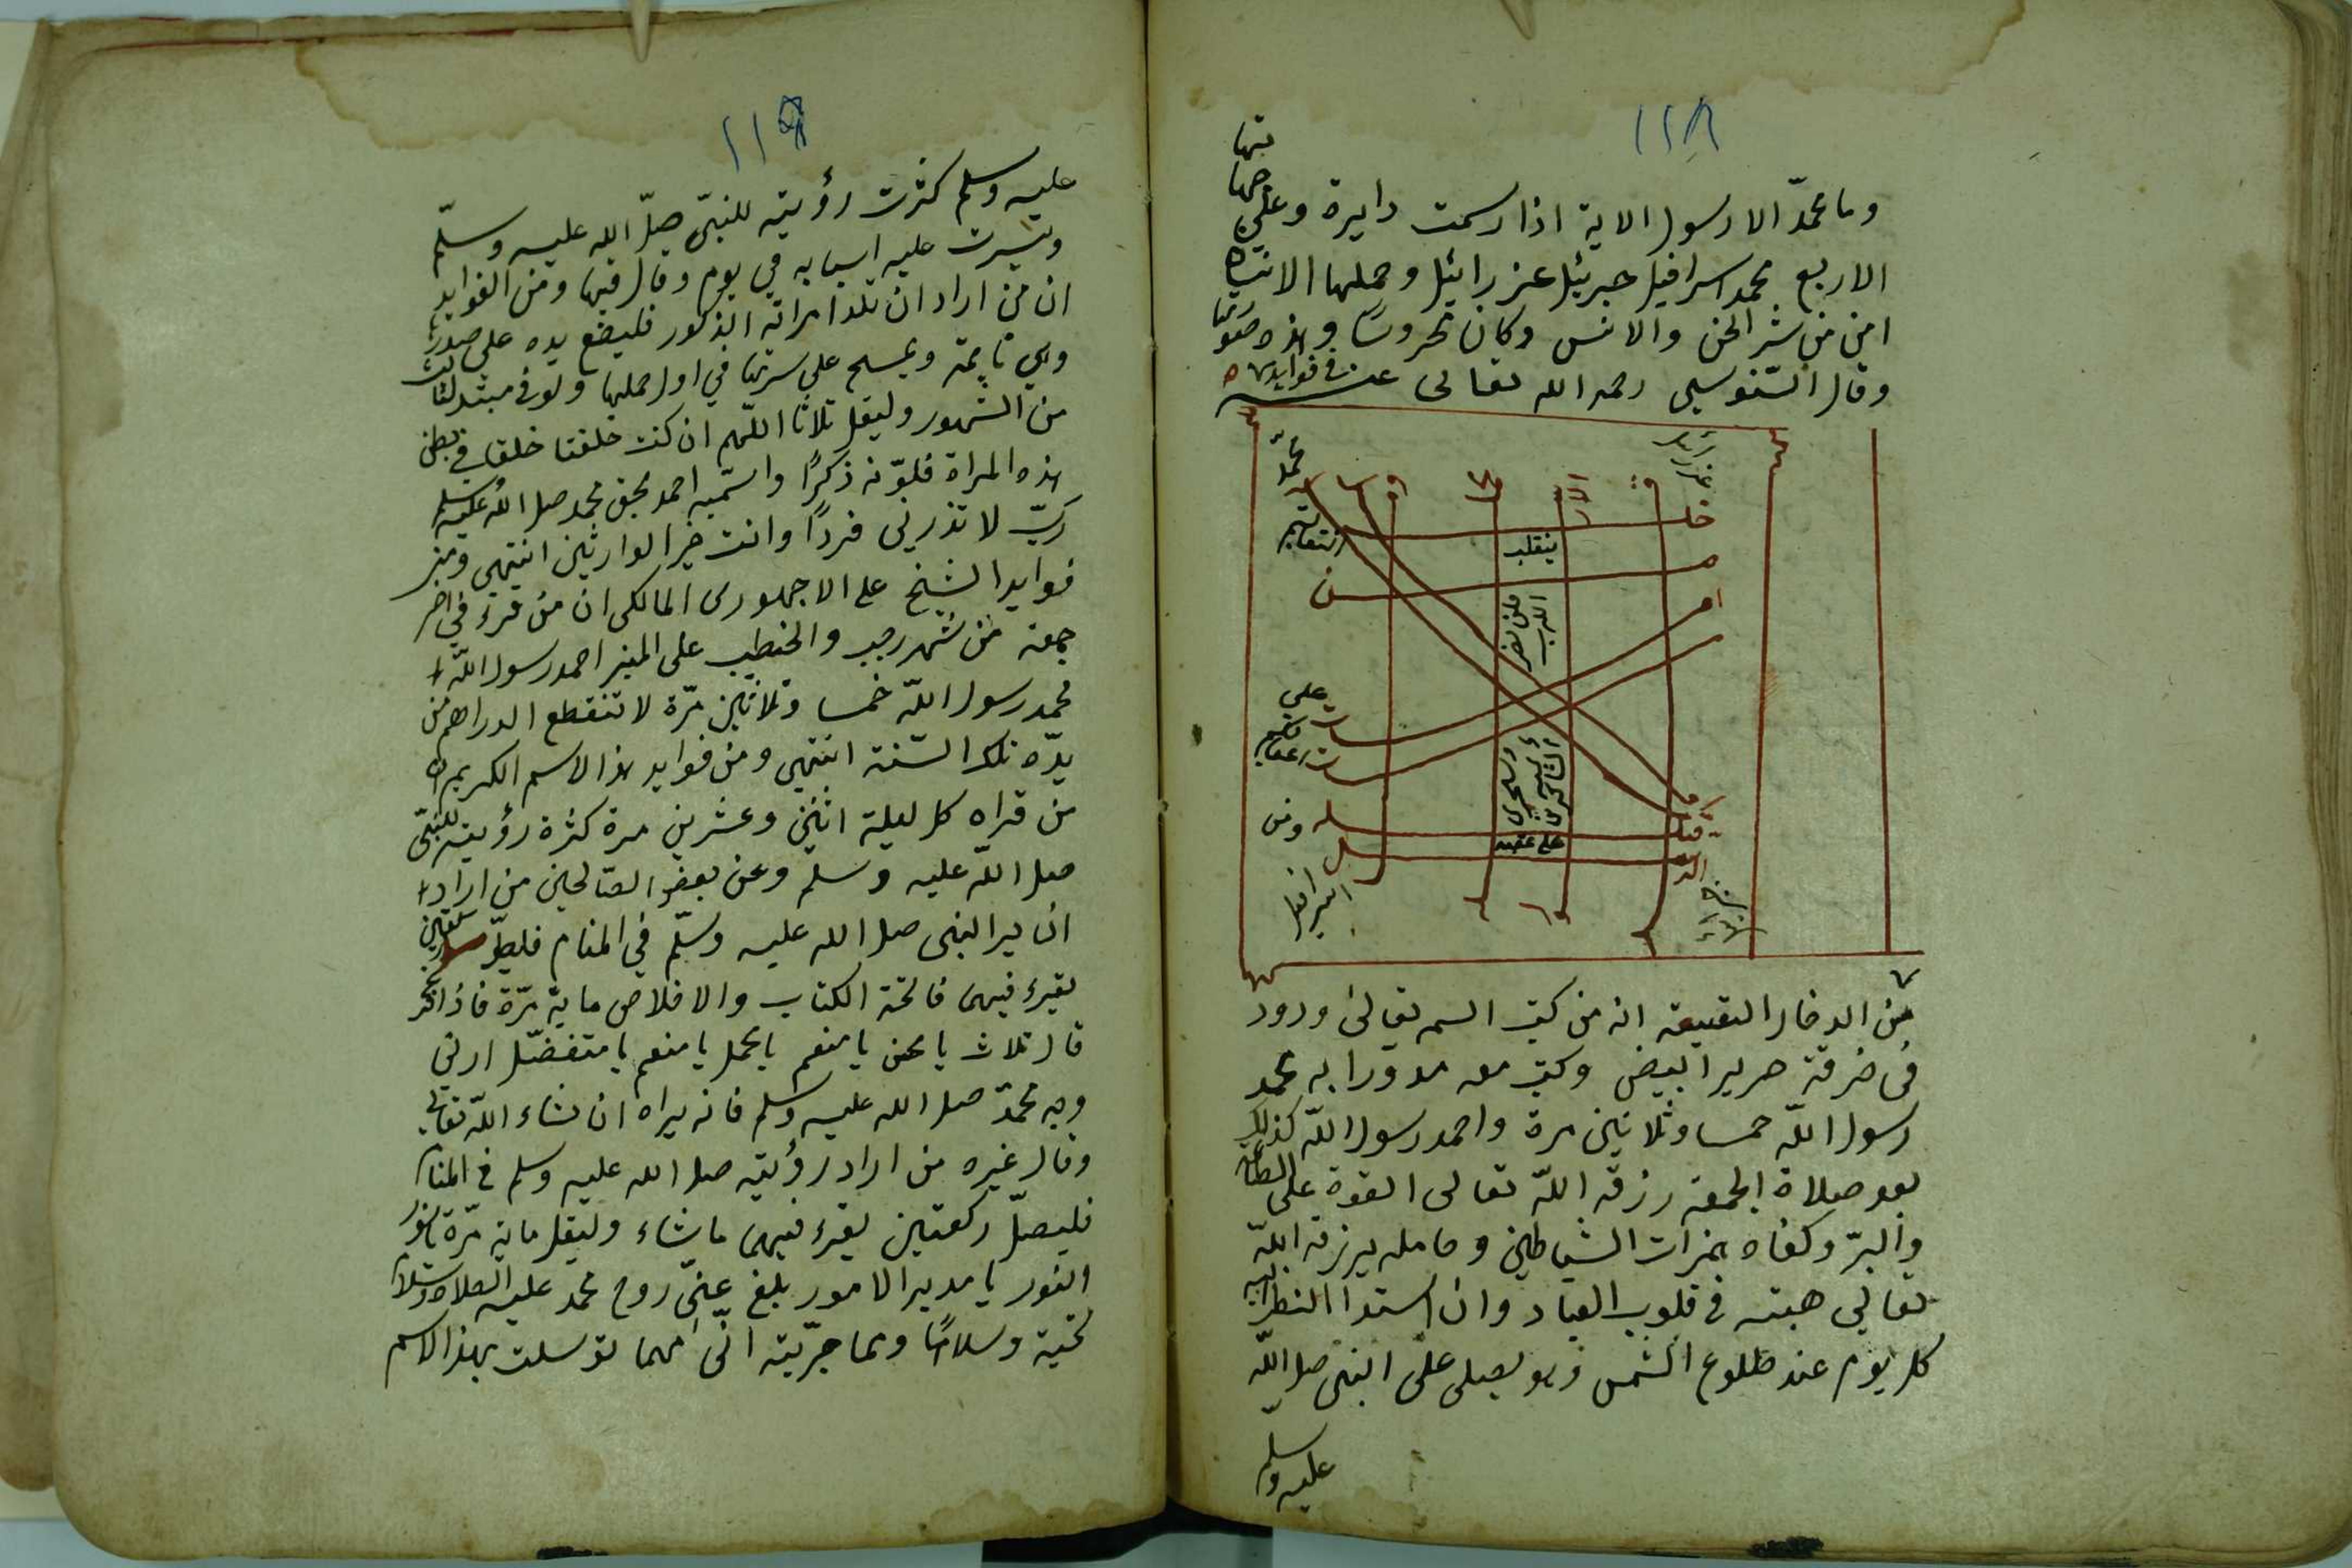 ١١٨
وما محمد الا رسول الاية اذا رسمت دايرة وعلى
جهاتها
الاربع محمد اسرافيل جبرئيل عزرائيل وحملها الانسان
امن من شر الجن والانس وكان محروسا وهذه صورتها
وقال السنوسي رحمه الله تعالى عنه في فوايده
محمد
عزرائيل
انقلبتم
ينقلب
فلن يضر
الله
على
اعقابكم
وسيجزى
الله
الشاكرين
على عقبيه
ومن
اسرافيل
جبرائيل
من الدخار النقيعة انه من كتب اسم تعالى ودود
فى خرقة حرير ابيض وكتب معه مدورا به محمد
رسول الله خمسا وثلاثين مرة واحمد رسول الله كذلك
بعد صلاة الجمعة رزقه الله تعالى القوة على الطاعة
والبر وكفاه همزات الشياطين وحامله يرزقه الله
تعالى هيبته فى قلوب العباد وان استدا النظر اليه
كل يوم عند طلوع الشمس وهو يصلى على النبى صلى الله
عليه وسلم
١١٩
عليه وسلم كثرت رؤيته للنبى صلى الله عليه وسلم
ويسرت عليه اسبابه في يوم وقال فيها ومن الفوايد
ان من اراد ان تلد امراته الذكور فليضع يده على صدرها
وهي نايمة ويمسح على سرتها في اول حملها ولو فى مبتد ثالث
من الشهور وليقل ثلاثا اللهم ان كنت خلقتا خلقا في بطن
هذه المراة فلونه ذكرا واسميه احمد بحق محمد صلى الله عليه وسلم
رب لا تذرنى فردا وانت خير الوارثين انتهى ومن
فوايد الشيخ على الاجهورى المالكى ان من قرء فى اخر
جمعة من شهر رجب والخطيب على المنبر احمد رسول الله
محمد رسول الله خمسا وثلاثين مرة لا تنقطع الدراهم من
يده تلك السنة انتهى ومن فوايد هذا الاسم الكريم ان
من قراه كل ليلة اثنين وعشرين مرة كثرة رؤيته للنبى
صلى الله عليه وسلم وعن بعض الصالحين من اراد
ان ير النبى صلى الله عليه وسلم في المنام فليصل ركعتين
يقرء فيهما فاتحة الكتاب والاخلاص ماية مرة فاذا فرغ
قال ثلاث يا محسن يا منعم يا مجمل يا منعم يا متفضل ارنى
وجه محمد صلى الله عليه وسلم فانه يراه ان شاء الله تعالى
وقال غيره من اراد رؤيته صلى الله عليه وسلم فى المنام
فليصل ركعتين يقرء فيهما ما شاء وليقل ماية مرة يا نور
النور يا مدبر الامور بلغ عنى روح محمد عليه الصلاة والسلام
تحية وسلاما ومما جربته انى مهما توسلت بهذا الاسم